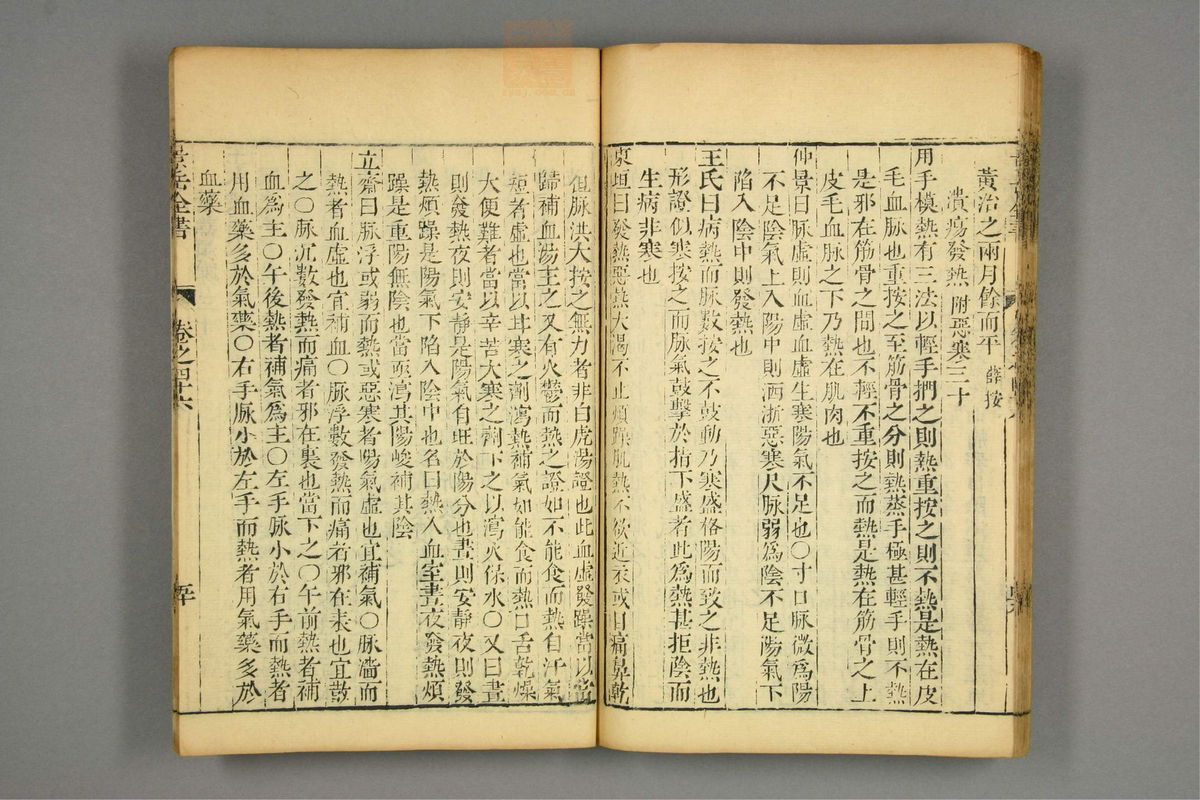 黃治之兩月餘而平 薛按
潰瘍發熱 附惡寒 三十
用手模熱有三法以輕手捫之則熱重按之則不熱是熱在皮
毛血脉也重按之至筋骨之分則熱蒸手極甚輕手則不熱
是邪在筋骨之間也不輕不重按之而熱是熱在筋骨之上
皮毛血脉之下乃熱在肌肉也
仲景曰脉虛則血虛血虛生寒陽氣不足也〇寸口脉微爲陽
不足陰氣上入陽中則洒淅惡寒尺脉弱爲陰不足陽氣下
陷入陰中則發熱也
王氏曰病熱而脉數按之不鼓動乃寒盛格陽而致之非熱也
形證似寒按之而脉氣鼓擊於指下盛者此爲熱甚拒陰而
生病非寒也
東垣曰發熱惡熱大渴不止煩躁肌熱不欲近衣或目痛鼻乾
但脉洪大按之無力者非白虎湯證也此血虛發躁當以當
歸補血湯主之又有火鬱而熱之證如不能食而熱自汗氣
短者虛也當以甘寒之劑瀉熱補氣如能食而熱口舌乾燥
大便難者當以辛苦大寒之劑下之以瀉火保水〇又曰晝
則發熱夜則安靜是陽氣自旺於陽分也晝則安靜夜則發
熱煩躁是陽氣下陷入陰中也名曰熱入血室晝夜發熱煩
躁是重陽無陰也當亟瀉其陽峻補其陰
立齋曰脉浮或弱而熱或惡寒者陽氣虛也宜補氣〇脉濇而
熱者血虛也宜補血〇脉浮數發熱而痛者邪在表也宜散
之〇脉沉數發熱而痛者邪在裏也當下之〇午前熱者補
血爲主〇午後熱者補氣爲主〇左手脉小於右手而熱者
用血藥多於氣藥〇右手脉小於左手而熱者用氣藥多於
血藥
景岳全書 卷之四十六 五十